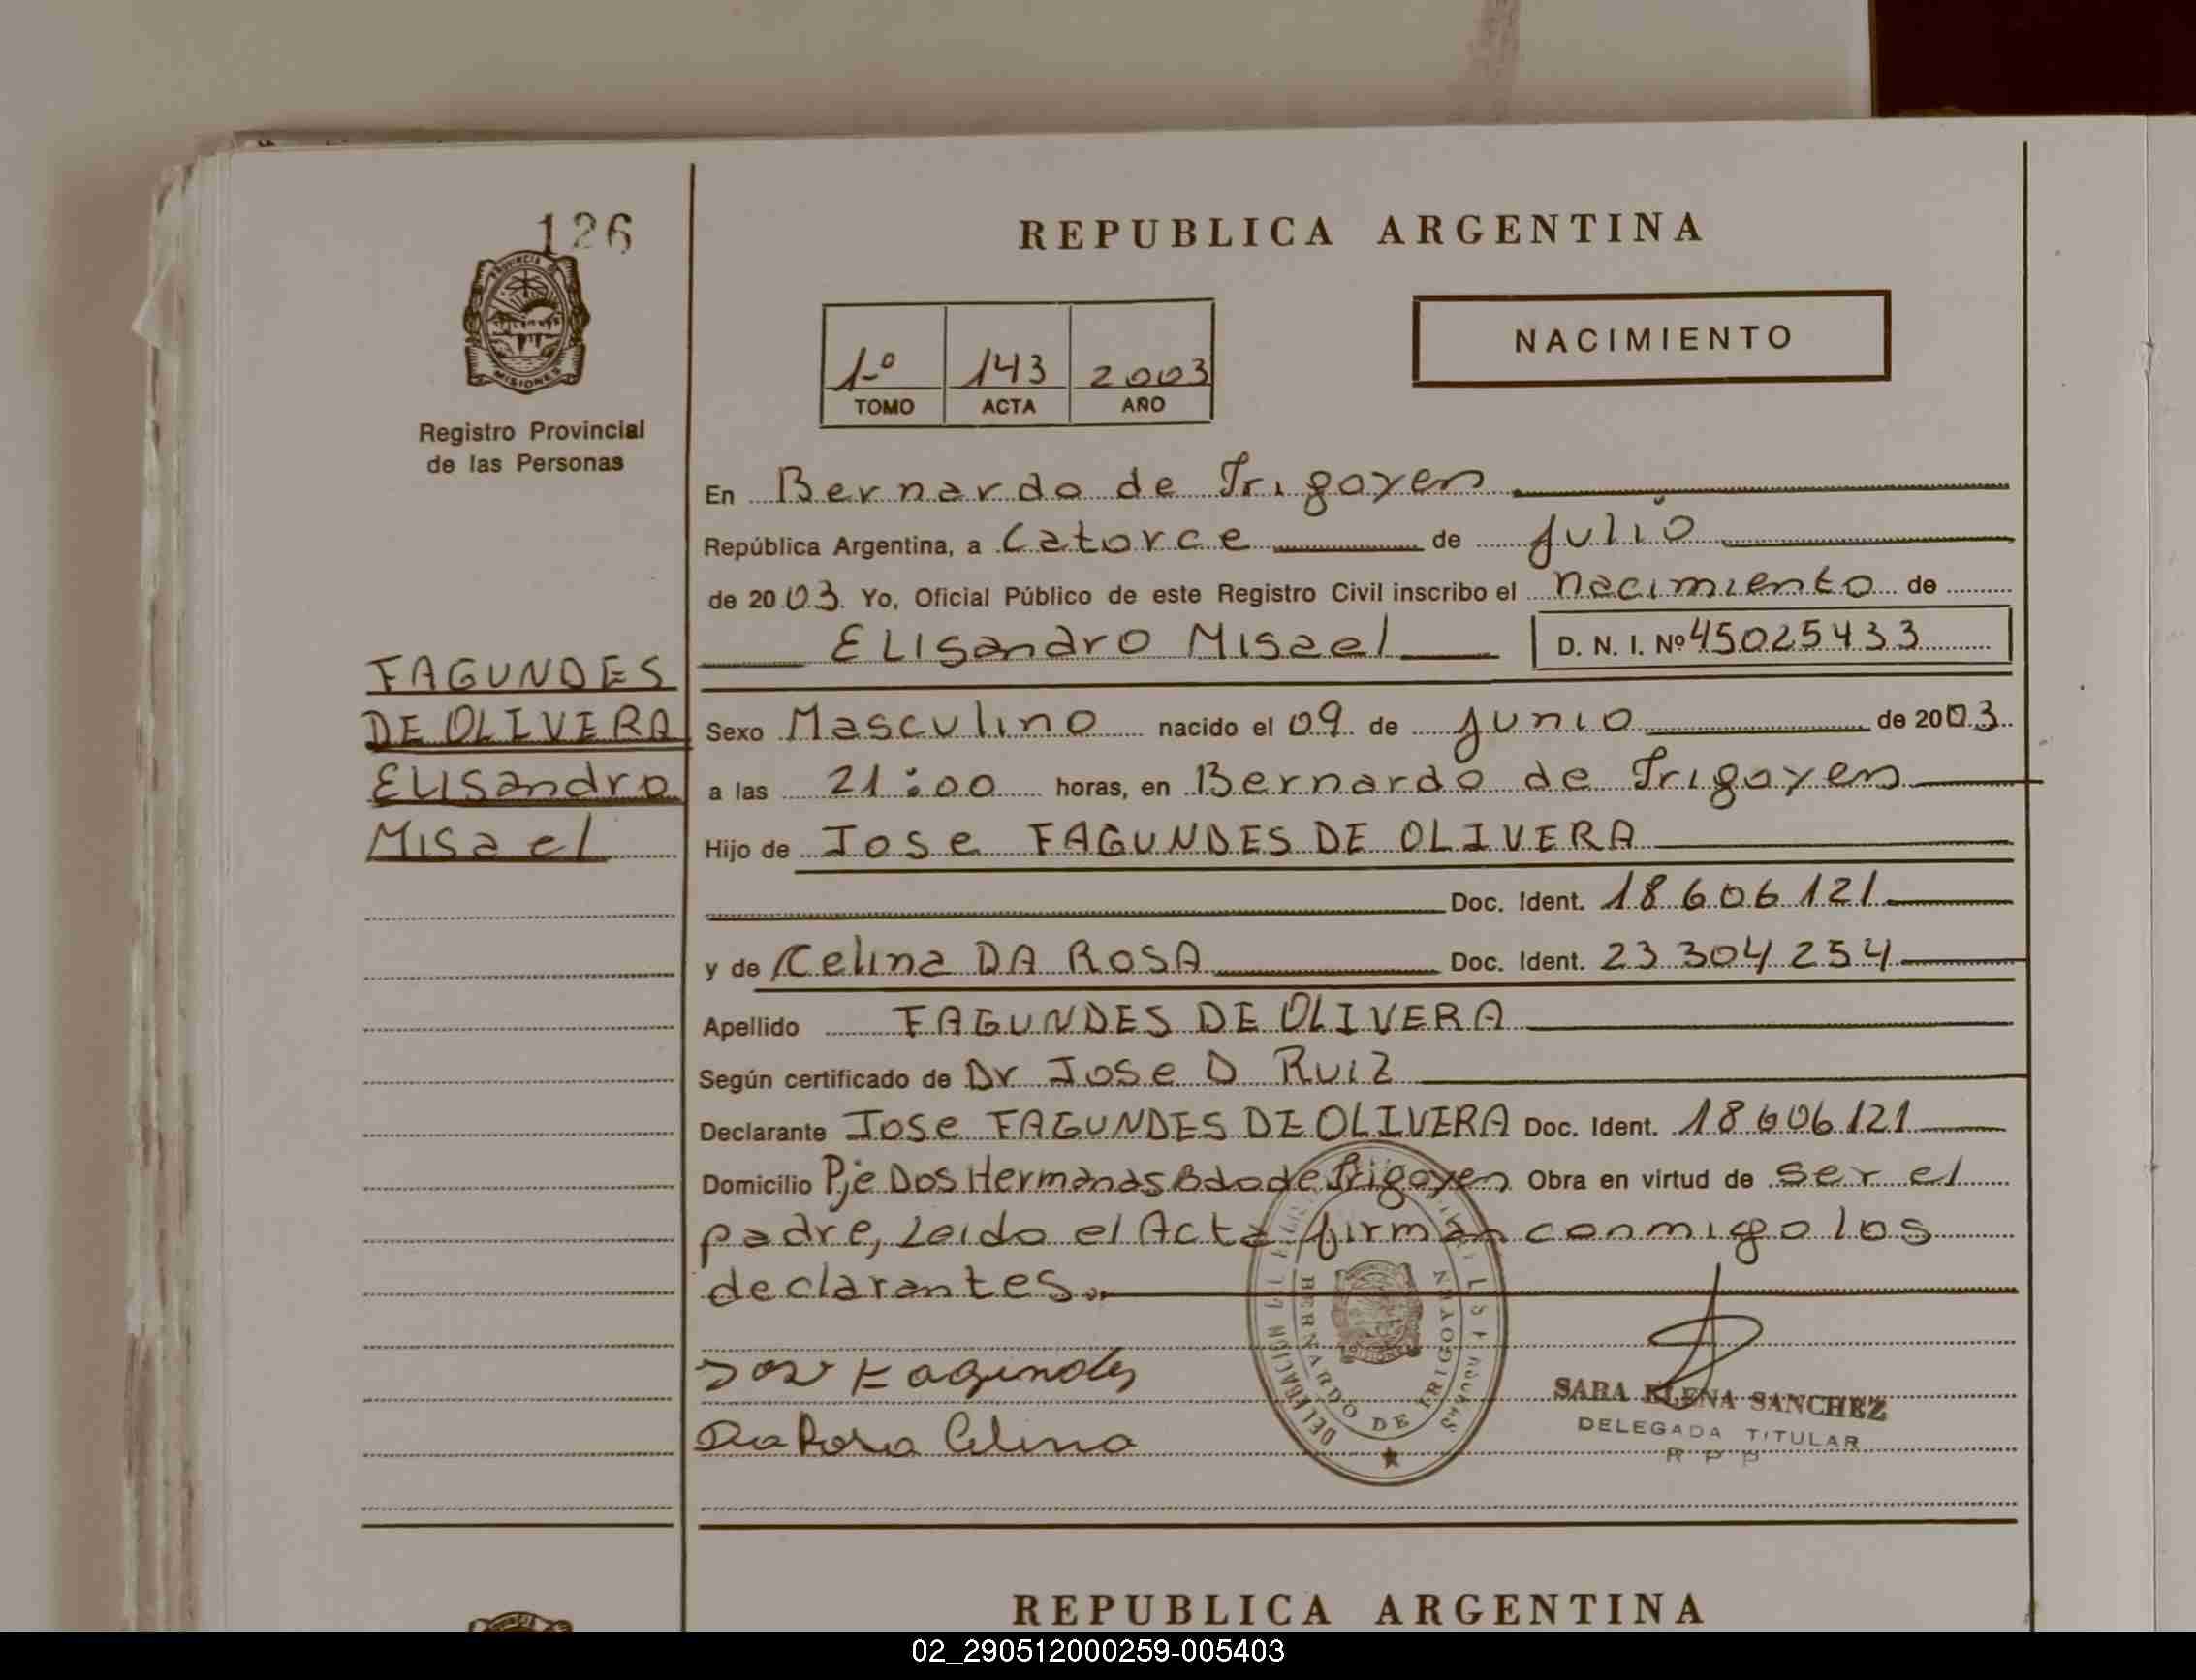 126
PROVINCIA DE
MISIONES
Registro Provincial
de las Personas
FAGUNDES
DE OLIVERA
ELISandro
Misael
REPUBLICA ARGENTINA
1º 143 2003
TOMO ACTA AÑO
NACIMIENTO
En Bernardo de Irigoyen
República Argentina, a Catorce de Julio
de 2003. Yo, Oficial Público de este Registro Civil inscribo el nacimiento de
ELISandro Misael D. N. I. Nº 45025433
Sexo Masculino nacido el 09 de Junio de 2003
a las 21:00 horas, en Bernardo de Irigoyen
Hijo de Jose FAGUNDES DE OLIVERA
Doc. Ident. 18 606 121
y de Celina DA ROSA Doc. Ident. 23 304 254
Apellido FAGUNDES DE OLIVERA
Según certificado de Dr Jose D Ruiz
Declarante Jose FAGUNDES DE OLIVERA Doc. Ident. 18 606 121
Domicilio Pje Dos Hermanas Bdo de Irigoyen Obra en virtud de ser el
padre, Leido el Acta firman conmigo los
declarantes.
BERNARDO DE IRIGOYEN
Jose Fagundes
Da Rosa Celina
SARA ELENA SANCHEZ
DELEGADA TITULAR
R P P
REPUBLICA ARGENTINA
02_290512000259-005403